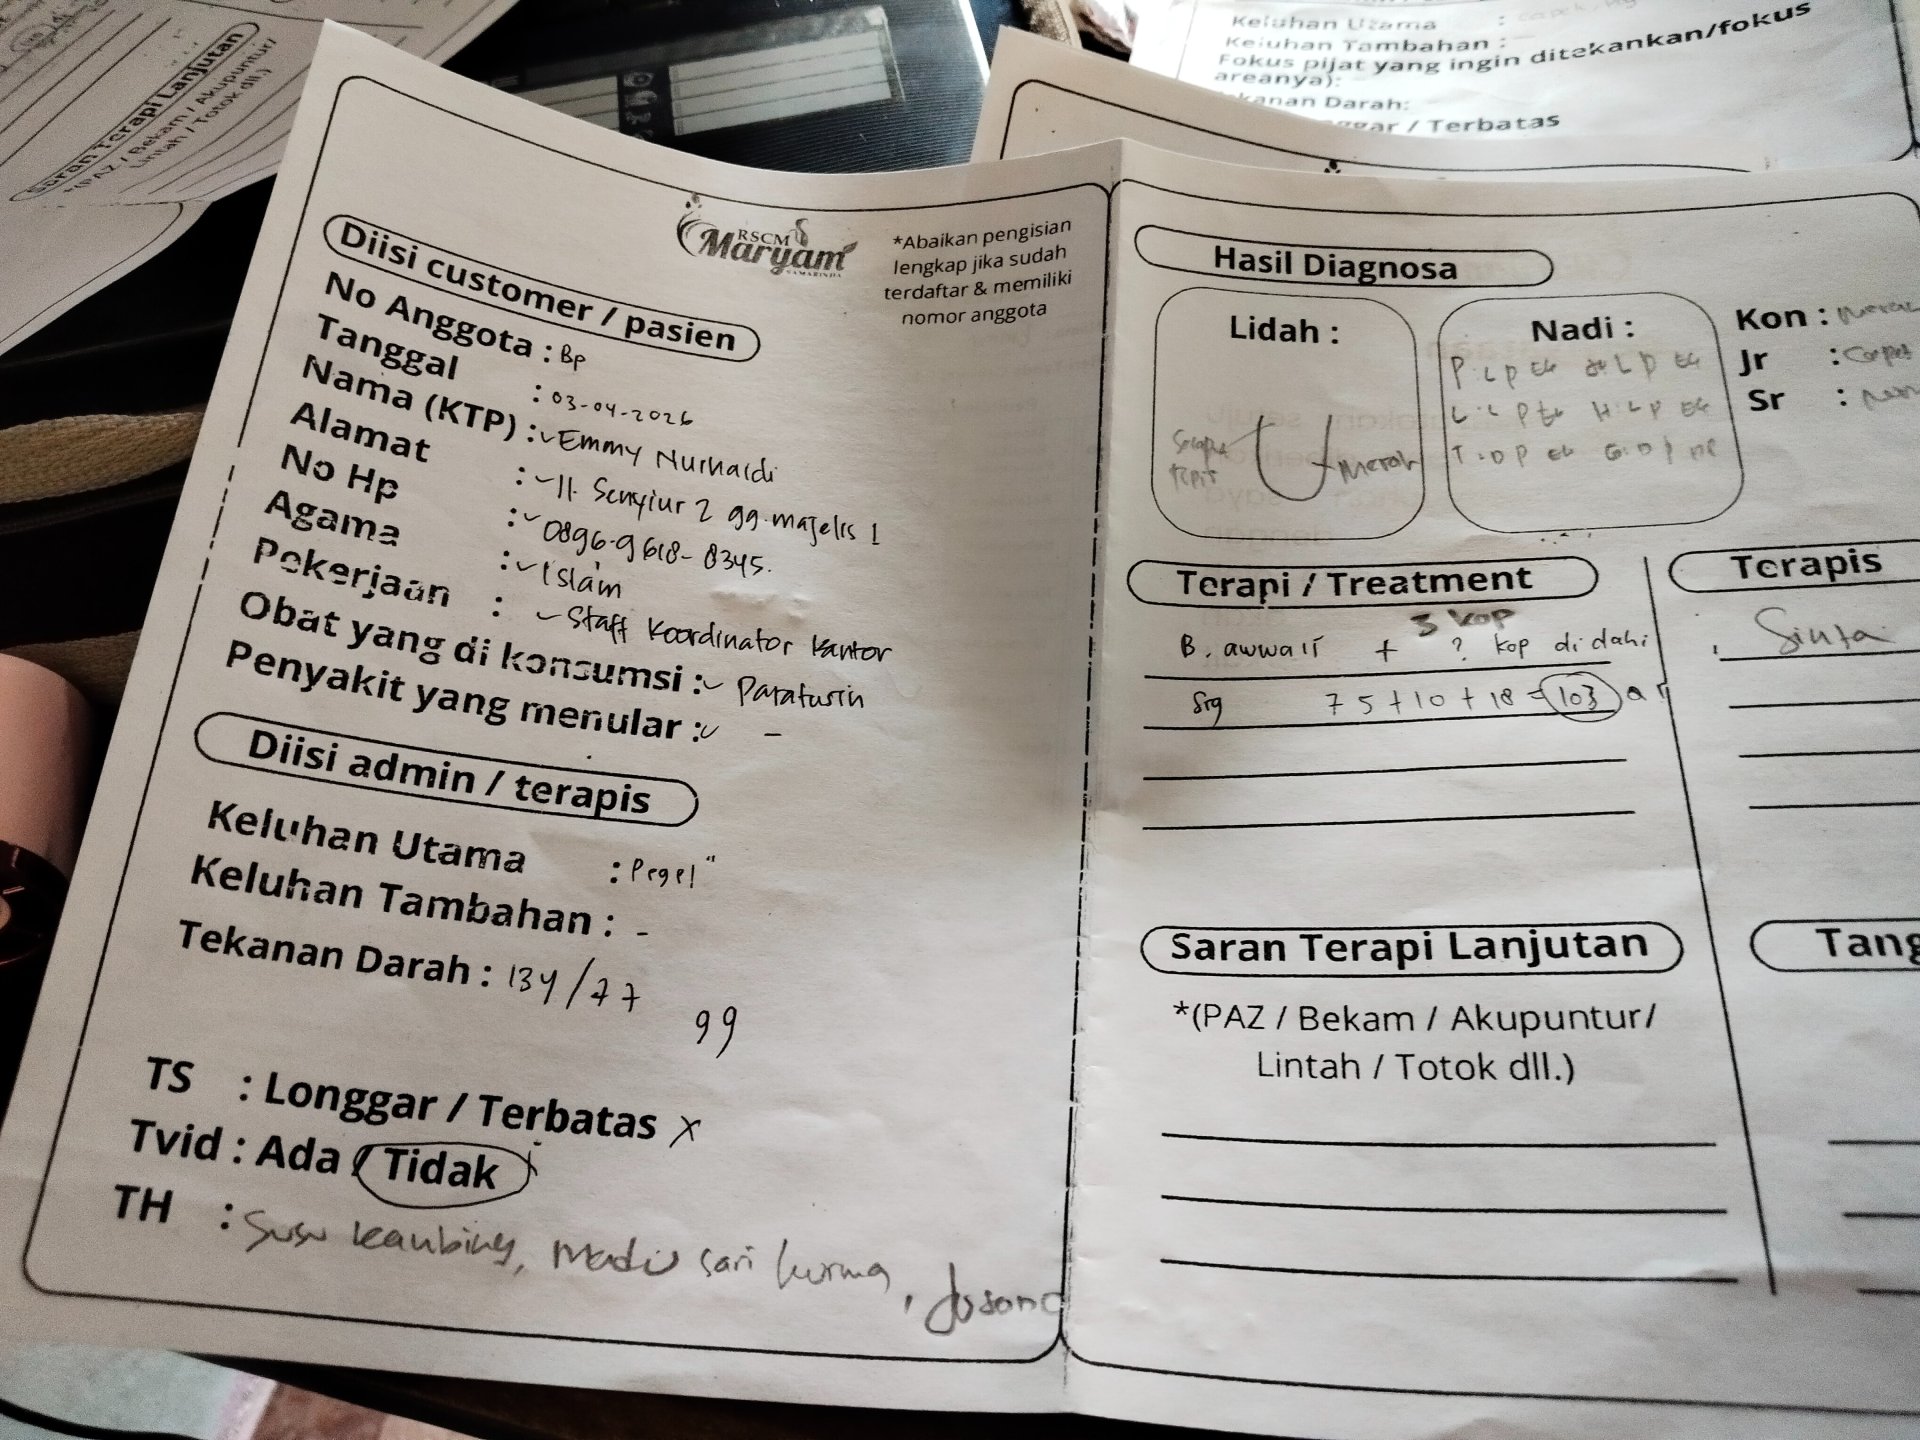 Saran Terapi Lanjutan
*(PAZ / Bekam / Akupuntur/
Lintah / Totok dll.)
Keluhan Utama :
Keluhan Tambahan :
Fokus pijat yang ingin ditekankan/fokus
areanya):
kanan Darah:
ggar / Terbatas
RSCM
Maryam
SAMARINDA
*Abaikan pengisian
lengkap jika sudah
terdaftar & memiliki
nomor anggota
Diisi customer / pasien
No Anggota : Bp
Tanggal : 03-04-2026
Nama (KTP) : Emmy Nurhaldi
Alamat : Jl. Senyiur 2 gg. majelis 1
No Hp : 0896-9618-8345.
Agama : Islam
Pekerjaan : Staff Koordinator Kantor
Obat yang di konsumsi : Paratusin
Penyakit yang menular : -
Diisi admin / terapis
Keluhan Utama : Pegel"
Keluhan Tambahan : -
Tekanan Darah : 134/77
99
TS : Longgar / Terbatas x
Tvid : Ada / Tidak
TH : Susu kambing, Madu sari kurma,
Hasil Diagnosa
Lidah :
Merah
Nadi :
Kon : Merah
Jr :
Sr :
Terapi / Treatment
3 kop
B. awwali + ? kop di dahi
Srg 75+10+18 = 103
Terapis
Sinta
Saran Terapi Lanjutan
*(PAZ / Bekam / Akupuntur/
Lintah / Totok dll.)
Tang